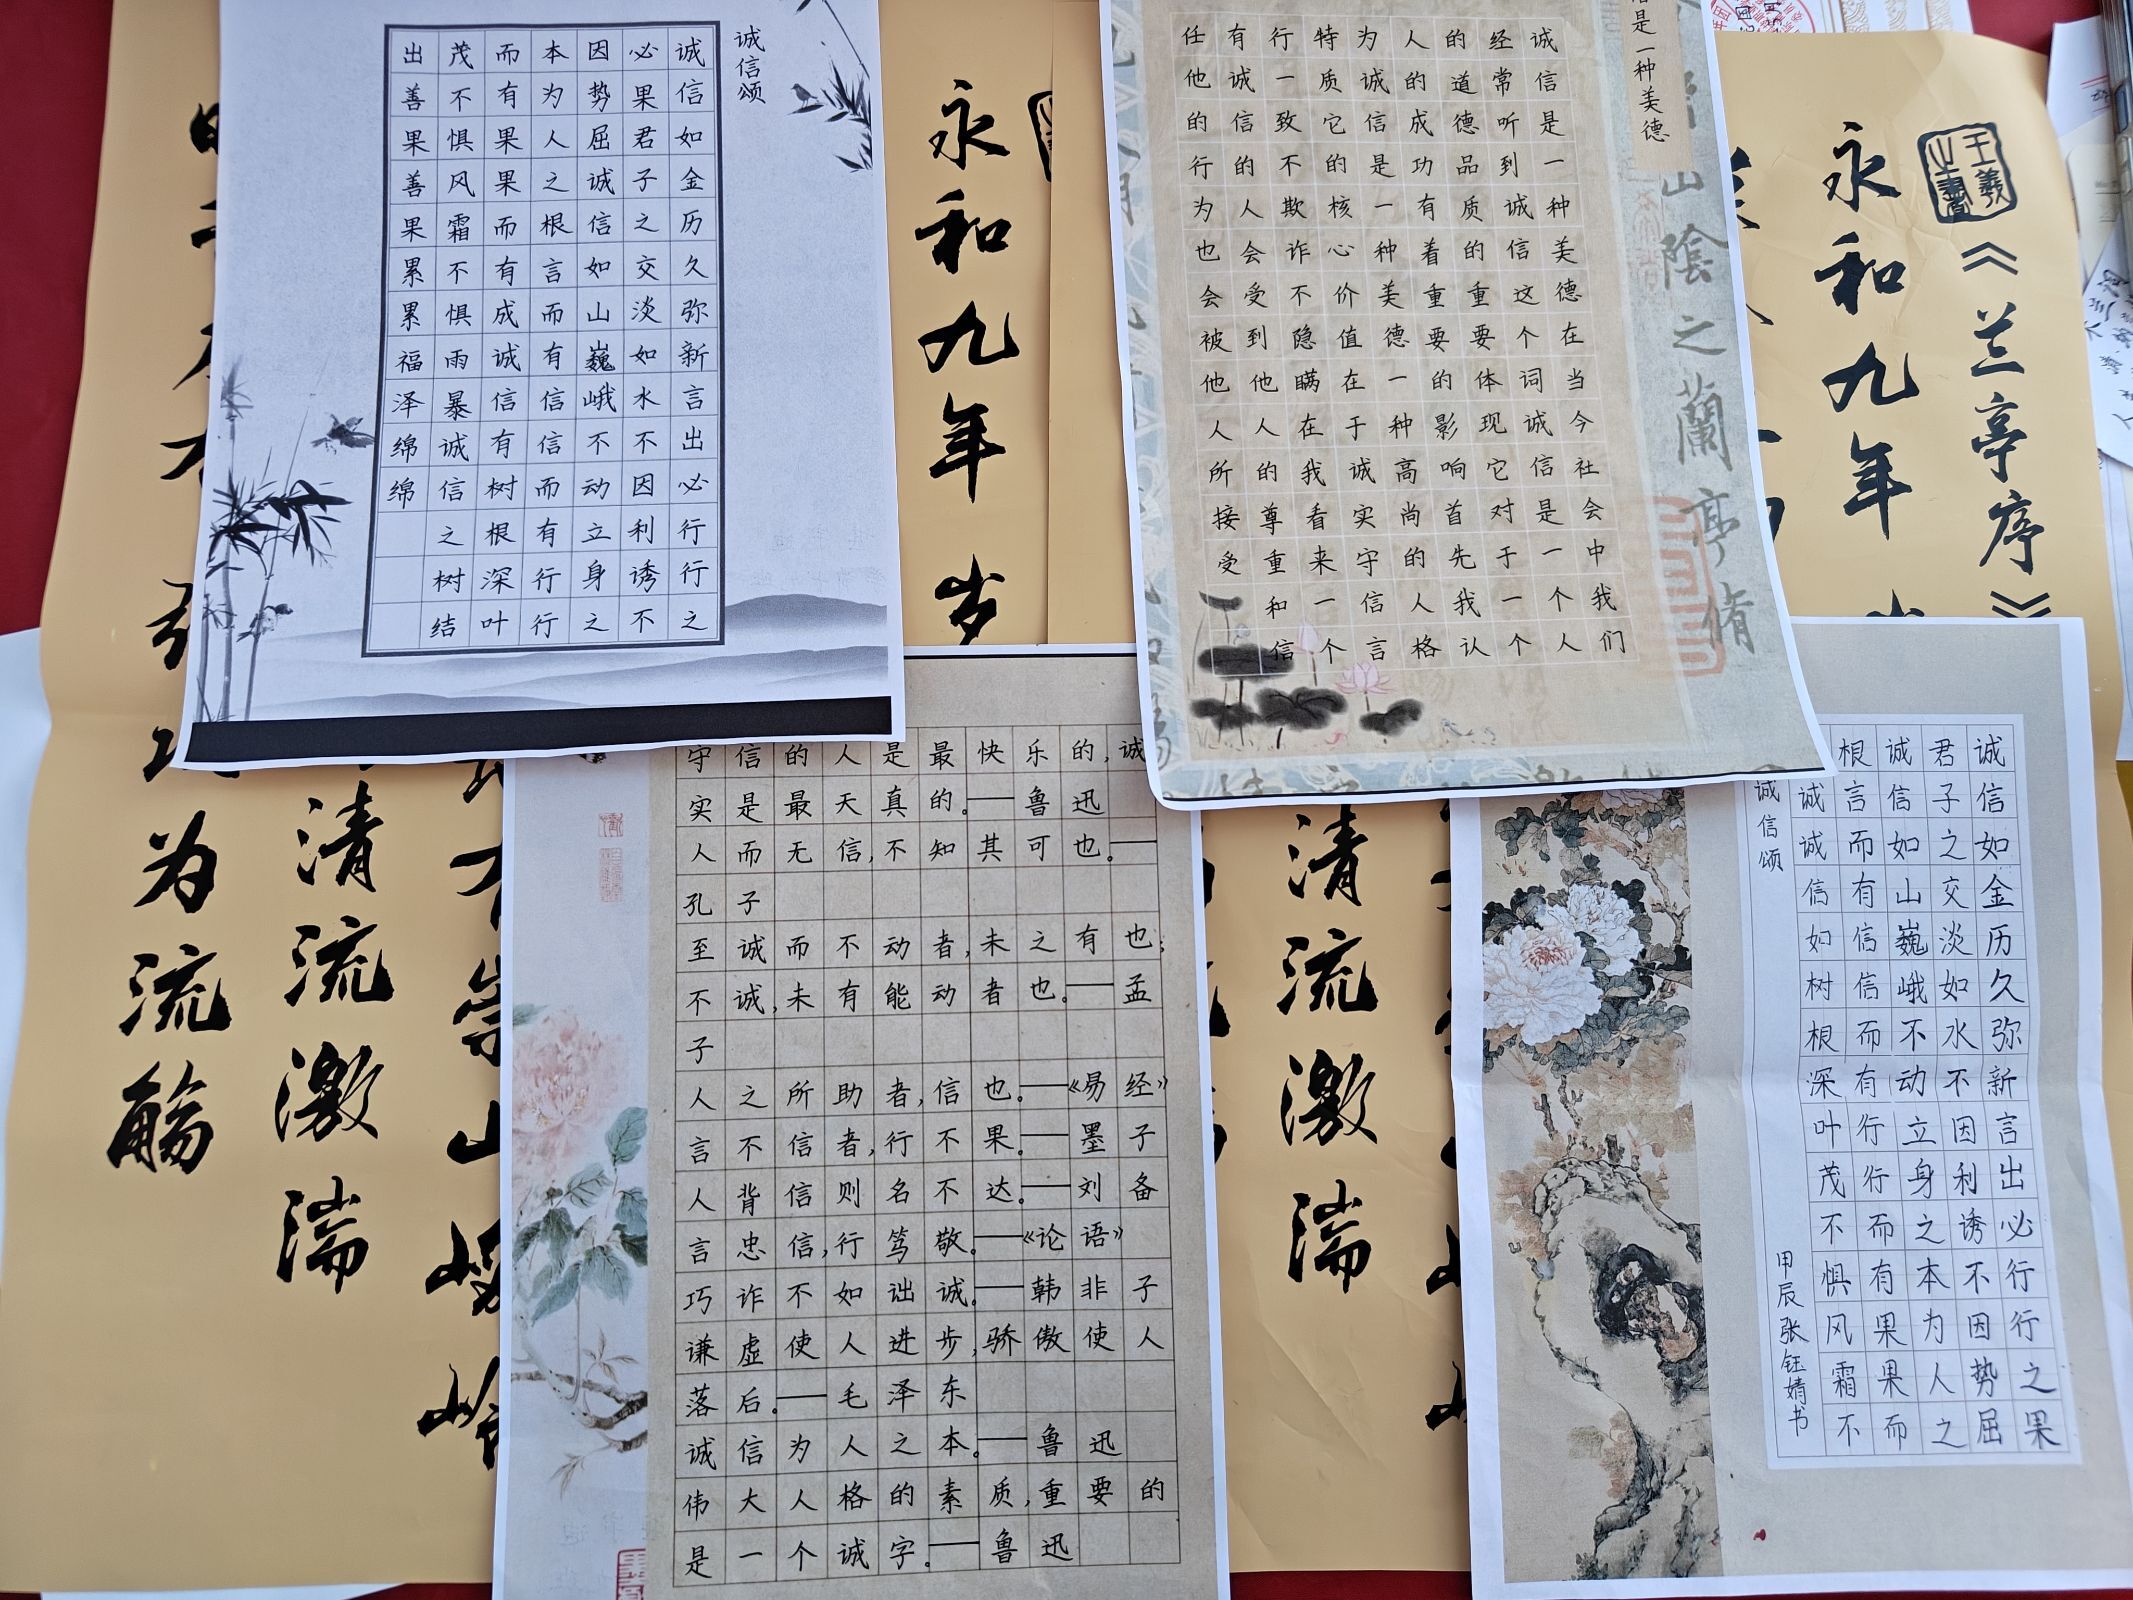 诚信颂
诚信如金历久弥新言出必行行之
必果君子之交淡如水不因利诱不
因势屈诚信如山巍峨不动立身之
本为人之根言而有信信而有行行
而有果果而有成诚信有树根深叶
茂不惧风霜不惧雨暴诚信之树结
出善果善果累累福泽绵绵
是一种美德
诚信是一种美德在当今社会中我们
经常听到诚信这个词诚信是一个人
的道德品质的重要体现它对于一个
人成功有着重要的影响首先我认
为诚信是一种美德一种高尚的人格
特质它的核心价值在于诚实守信言
行一致不欺诈不隐瞒在我看来一个
有诚信的人会受到他人的尊重和信
任他的行为也会被他人所接受
山陰之蘭亭脩
守信的人是最快乐的,诚
实是最天真的。——鲁迅
人而无信,不知其可也。——
孔子
至诚而不动者,未之有也;
不诚,未有能动者也。——孟
子
人之所助者,信也。——《易经》
言不信者,行不果。——墨子
人背信则名不达。——刘备
言忠信,行笃敬。——《论语》
巧诈不如诎诚。——韩非子
谦虚使人进步,骄傲使人
落后。——毛泽东
诚信为人之本。——鲁迅
伟大人格的素质,重要的
是一个诚字。——鲁迅
诚信颂
诚信如金历久弥新言出必行行之果
君子之交淡如水不因利诱不因势屈
诚信如山巍峨不动立身之本为人之
根言而有信信而有行行而有果果而
诚诚信如树根深叶茂不惧风霜不
甲辰张钰婧书
《兰亭序》
王羲之書
永和九年
永和九年岁
清流激湍
清流激湍
为流觞